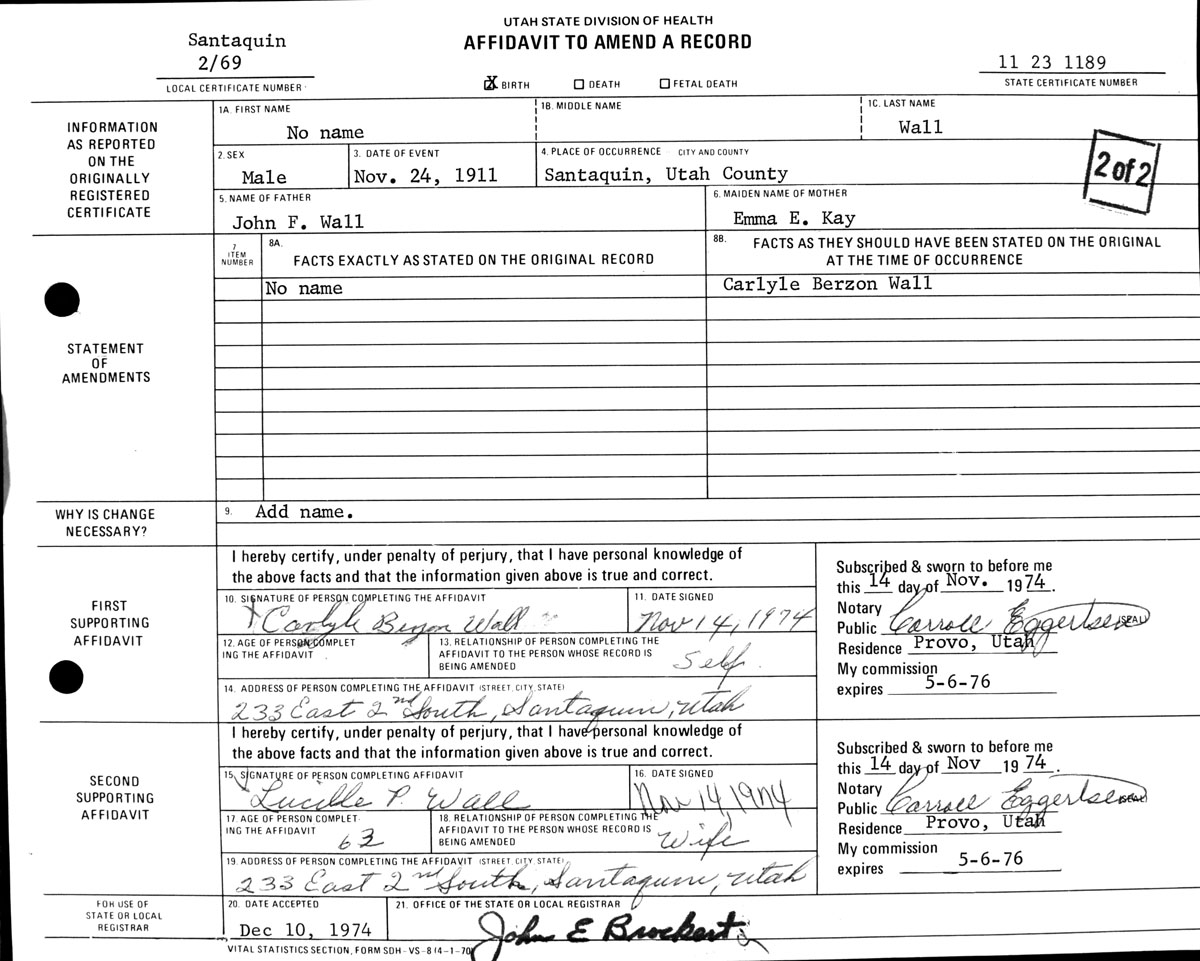 UTAH STATE DIVISION OF HEALTH
AFFIDAVIT TO AMEND A RECORD
Santaquin
2/69
LOCAL CERTIFICATE NUMBER
X BIRTH DEATH FETAL DEATH
11 23 1189
STATE CERTIFICATE NUMBER
INFORMATION
AS REPORTED
ON THE
ORIGINALLY
REGISTERED
CERTIFICATE
1A. FIRST NAME
No name
1B. MIDDLE NAME
1C. LAST NAME
Wall
2. SEX
Male
3. DATE OF EVENT
Nov. 24, 1911
4. PLACE OF OCCURRENCE CITY AND COUNTY
Santaquin, Utah County
2 of 2
5. NAME OF FATHER
John F. Wall
6. MAIDEN NAME OF MOTHER
Emma E. Kay
STATEMENT
OF
AMENDMENTS
7
ITEM
NUMBER
8A.
FACTS EXACTLY AS STATED ON THE ORIGINAL RECORD
8B. FACTS AS THEY SHOULD HAVE BEEN STATED ON THE ORIGINAL
AT THE TIME OF OCCURRENCE
No name
Carlyle Berzon Wall
WHY IS CHANGE
NECESSARY?
9. Add name.
FIRST
SUPPORTING
AFFIDAVIT
I hereby certify, under penalty of perjury, that I have personal knowledge of
the above facts and that the information given above is true and correct.
10. SIGNATURE OF PERSON COMPLETING THE AFFIDAVIT
Carlyle Berzon Wall
11. DATE SIGNED
Nov 14, 1974
12. AGE OF PERSON COMPLET
ING THE AFFIDAVIT
13. RELATIONSHIP OF PERSON COMPLETING THE
AFFIDAVIT TO THE PERSON WHOSE RECORD IS
BEING AMENDED
Self
14. ADDRESS OF PERSON COMPLETING THE AFFIDAVIT (STREET, CITY, STATE)
233 East 2nd South, Santaquin, Utah
Subscribed & sworn to before me
this 14 day of Nov. 1974.
Notary
Public Carroll Eggertsen (SEAL)
Residence Provo, Utah
My commission
expires 5-6-76
SECOND
SUPPORTING
AFFIDAVIT
I hereby certify, under penalty of perjury, that I have personal knowledge of
the above facts and that the information given above is true and correct.
15. SIGNATURE OF PERSON COMPLETING AFFIDAVIT
Lucille P. Wall
16. DATE SIGNED
Nov 14, 1974
17. AGE OF PERSON COMPLET-
ING THE AFFIDAVIT
63
18. RELATIONSHIP OF PERSON COMPLETING THE
AFFIDAVIT TO THE PERSON WHOSE RECORD IS
BEING AMENDED
Wife
19. ADDRESS OF PERSON COMPLETING THE AFFIDAVIT (STREET, CITY, STATE)
233 East 2nd South, Santaquin, Utah
Subscribed & sworn to before me
this 14 day of Nov 1974.
Notary
Public Carroll Eggertsen (SEAL)
Residence Provo, Utah
My commission
expires 5-6-76
FOR USE OF
STATE OR LOCAL
REGISTRAR
20. DATE ACCEPTED
Dec 10, 1974
21. OFFICE OF THE STATE OR LOCAL REGISTRAR
John E Brockert
VITAL STATISTICS SECTION, FORM SDH-VS-8 (4-1-70)